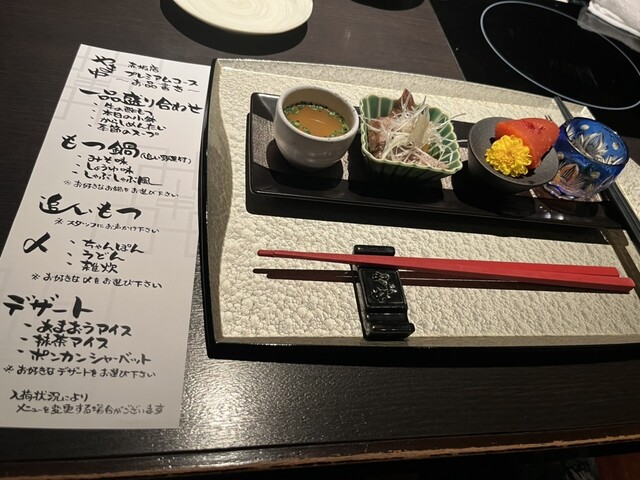 やま中
赤坂店
プレミアムコース
〜お品書き〜
一品盛り合わせ
・牛の酢もつ
・本日の小鉢
・からしめんたい
・季節のスープ
もつ鍋(追い野菜付)
・みそ味
・しょうゆ味
・しゃぶしゃぶ風
※お好きなお鍋をお選び下さい
追いもつ
※スタッフにお声かけ下さい
〆
・ちゃんぽん
・うどん
・雑炊
※お好きな〆をお選び下さい
デザート
・あまおうアイス
・抹茶アイス
・ポンカンシャーベット
※お好きなデザートをお選び下さい
入荷状況により
メニューを変更する場合がございます